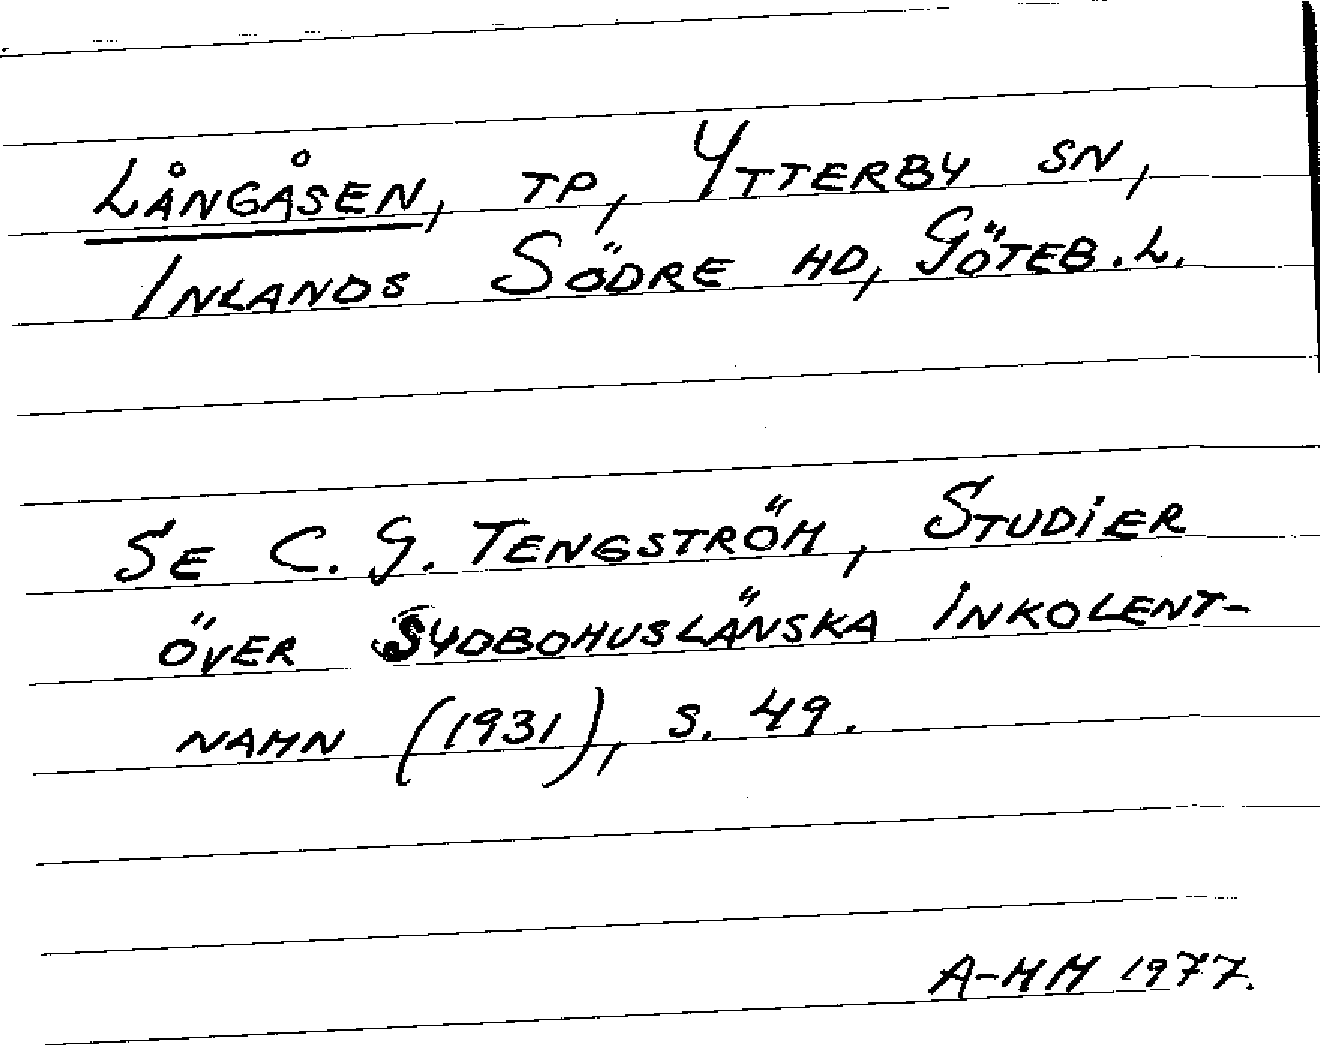 LÅNGÅSEN, TP, YTTERBY SN,
INLANDS SÖDRE HD, GÖTEB.L.
SE C. G. TENGSTRÖM, STUDIER
ÖVER SYDBOHUSLÄNSKA INKOLENT-
NAMN (1931), S. 49.
A-MM 1977.